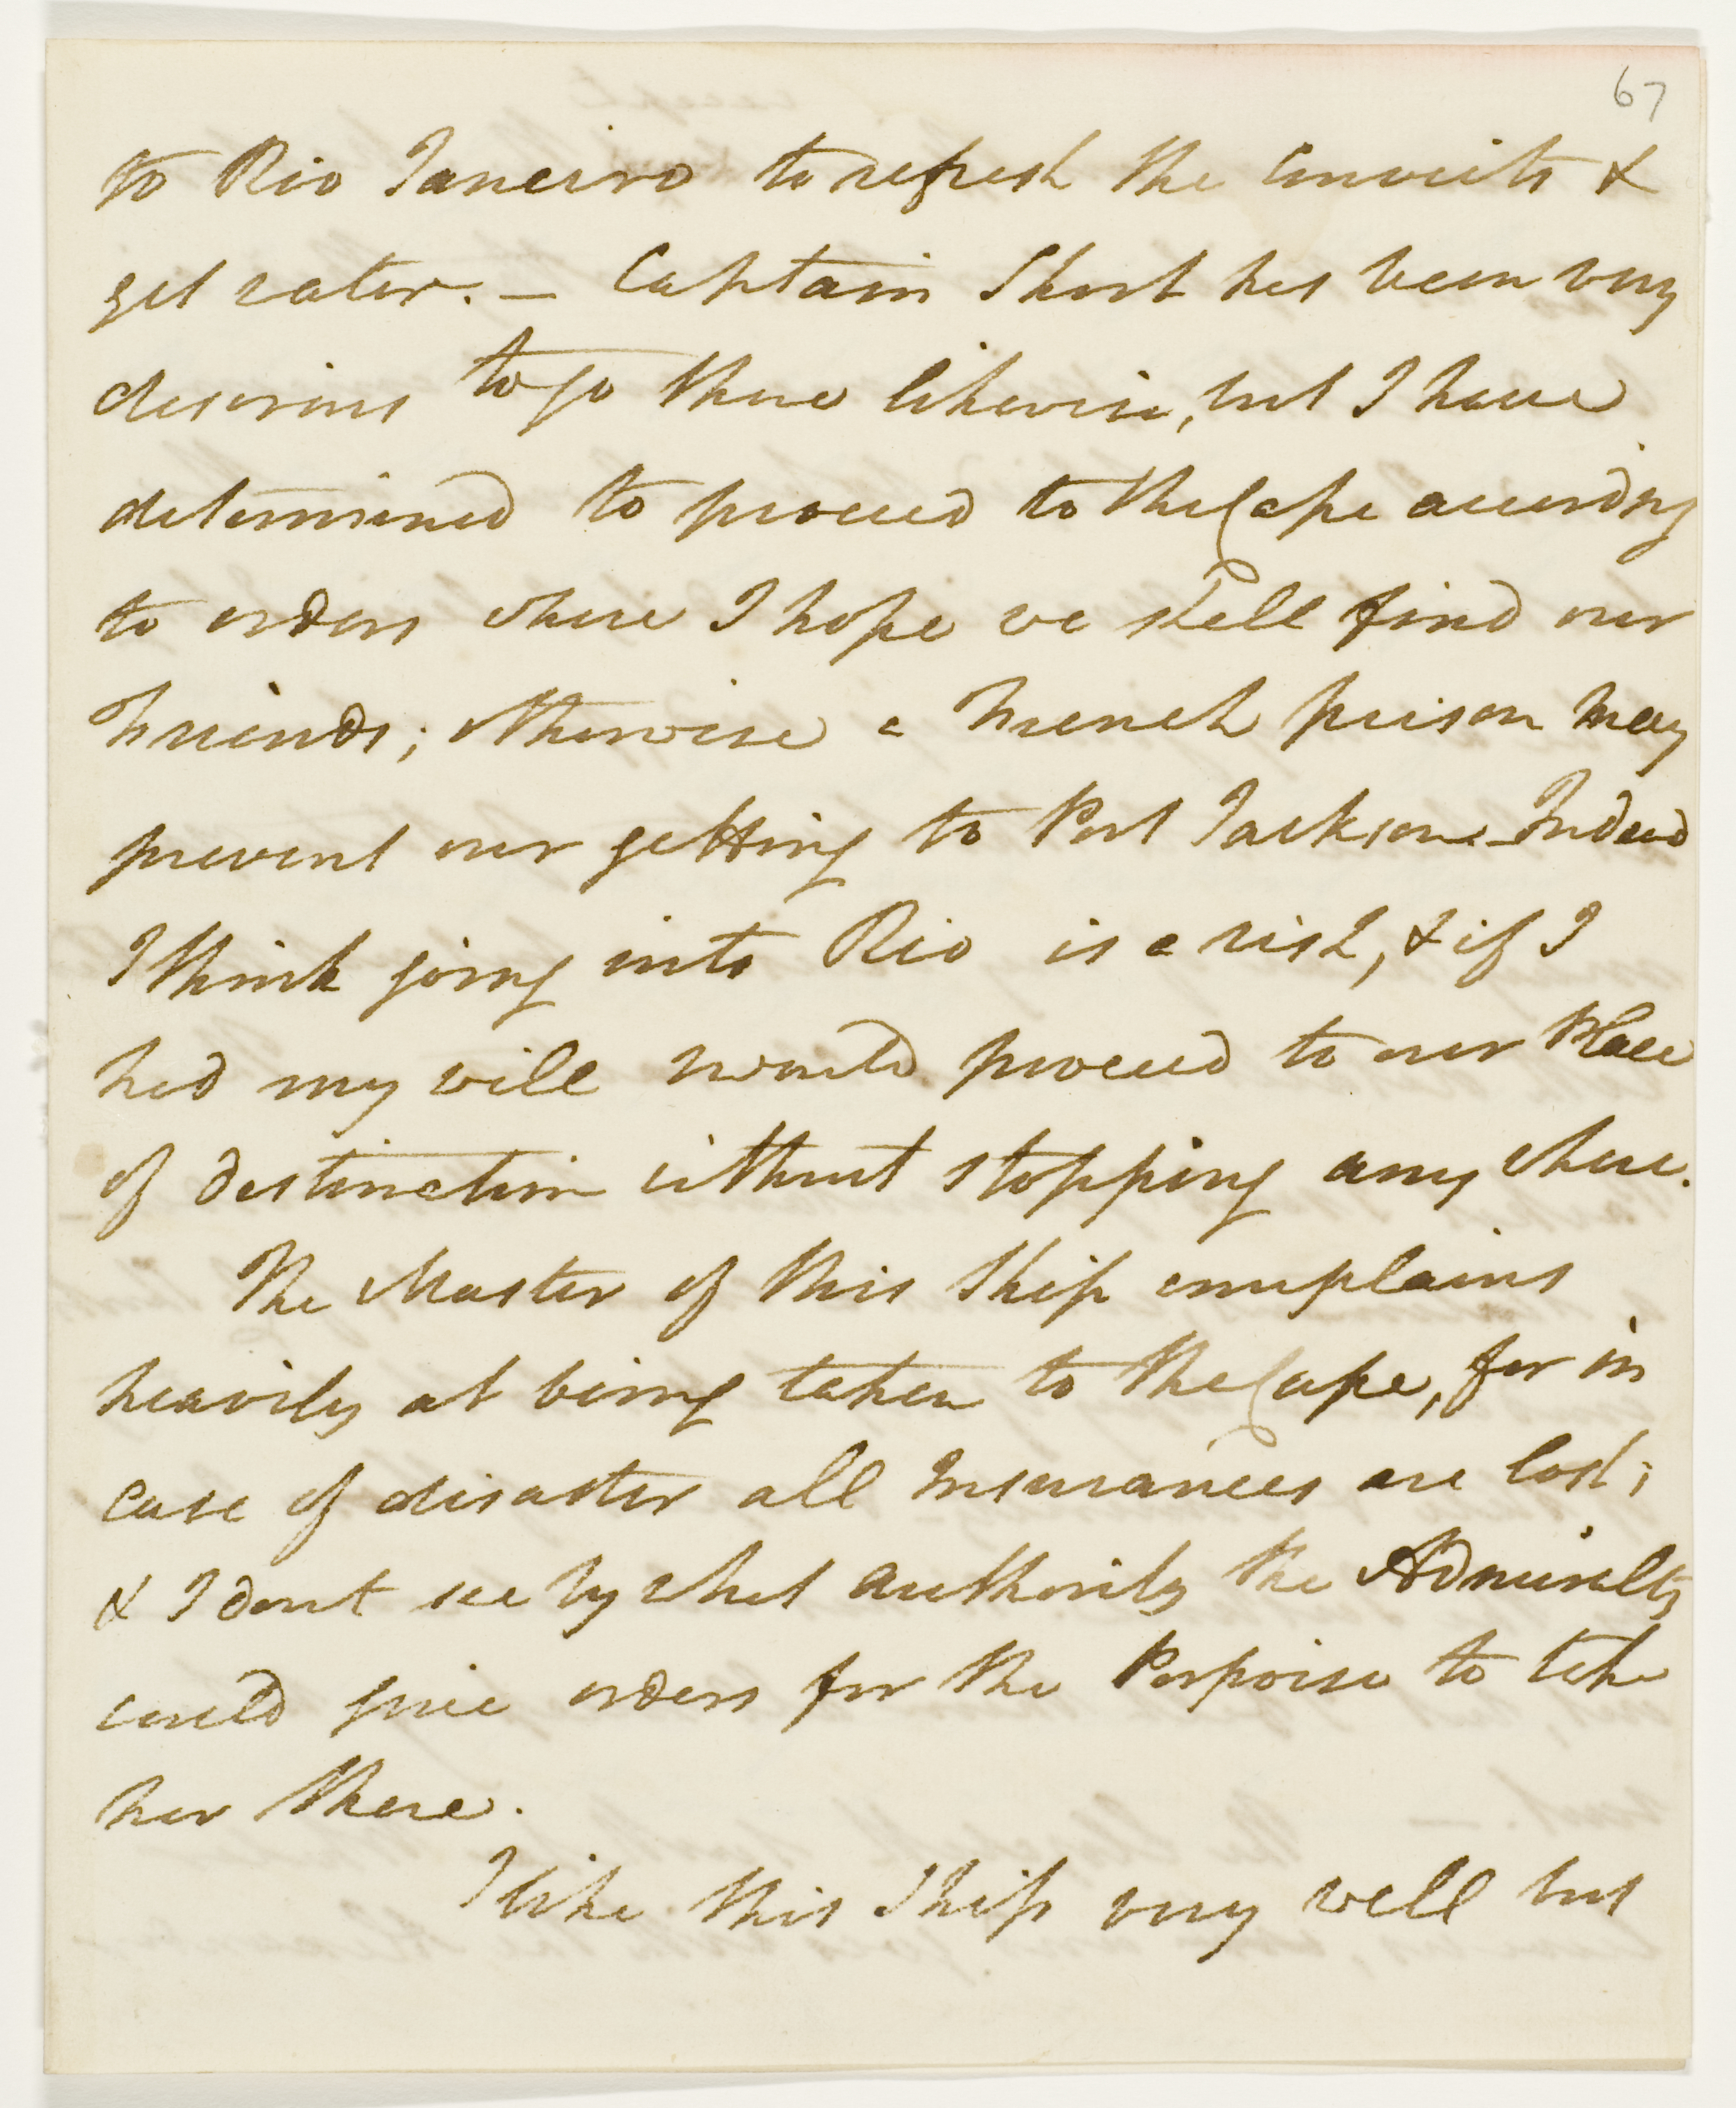 67
to Rio Janeiro to refresh the Convicts &
get water. — Captain Short has been very
desirous to go there likewise, but I have
determined to proceed to the Cape according
to orders where I hope we shall find our
friends; otherwise a French prison may
prevent our getting to Port Jackson. Indeed
I think going into Rio is a risk, & if I
had my will would proceed to our Place
of destination without stopping any where.
The Master of this Ship complains
heavily at being taken to the Cape, for in
case of disaster all Insurances are lost;
& I dont see by what authority the Admiralty
could give orders for the Porpoise to take
her there.
I like this Ship very well but